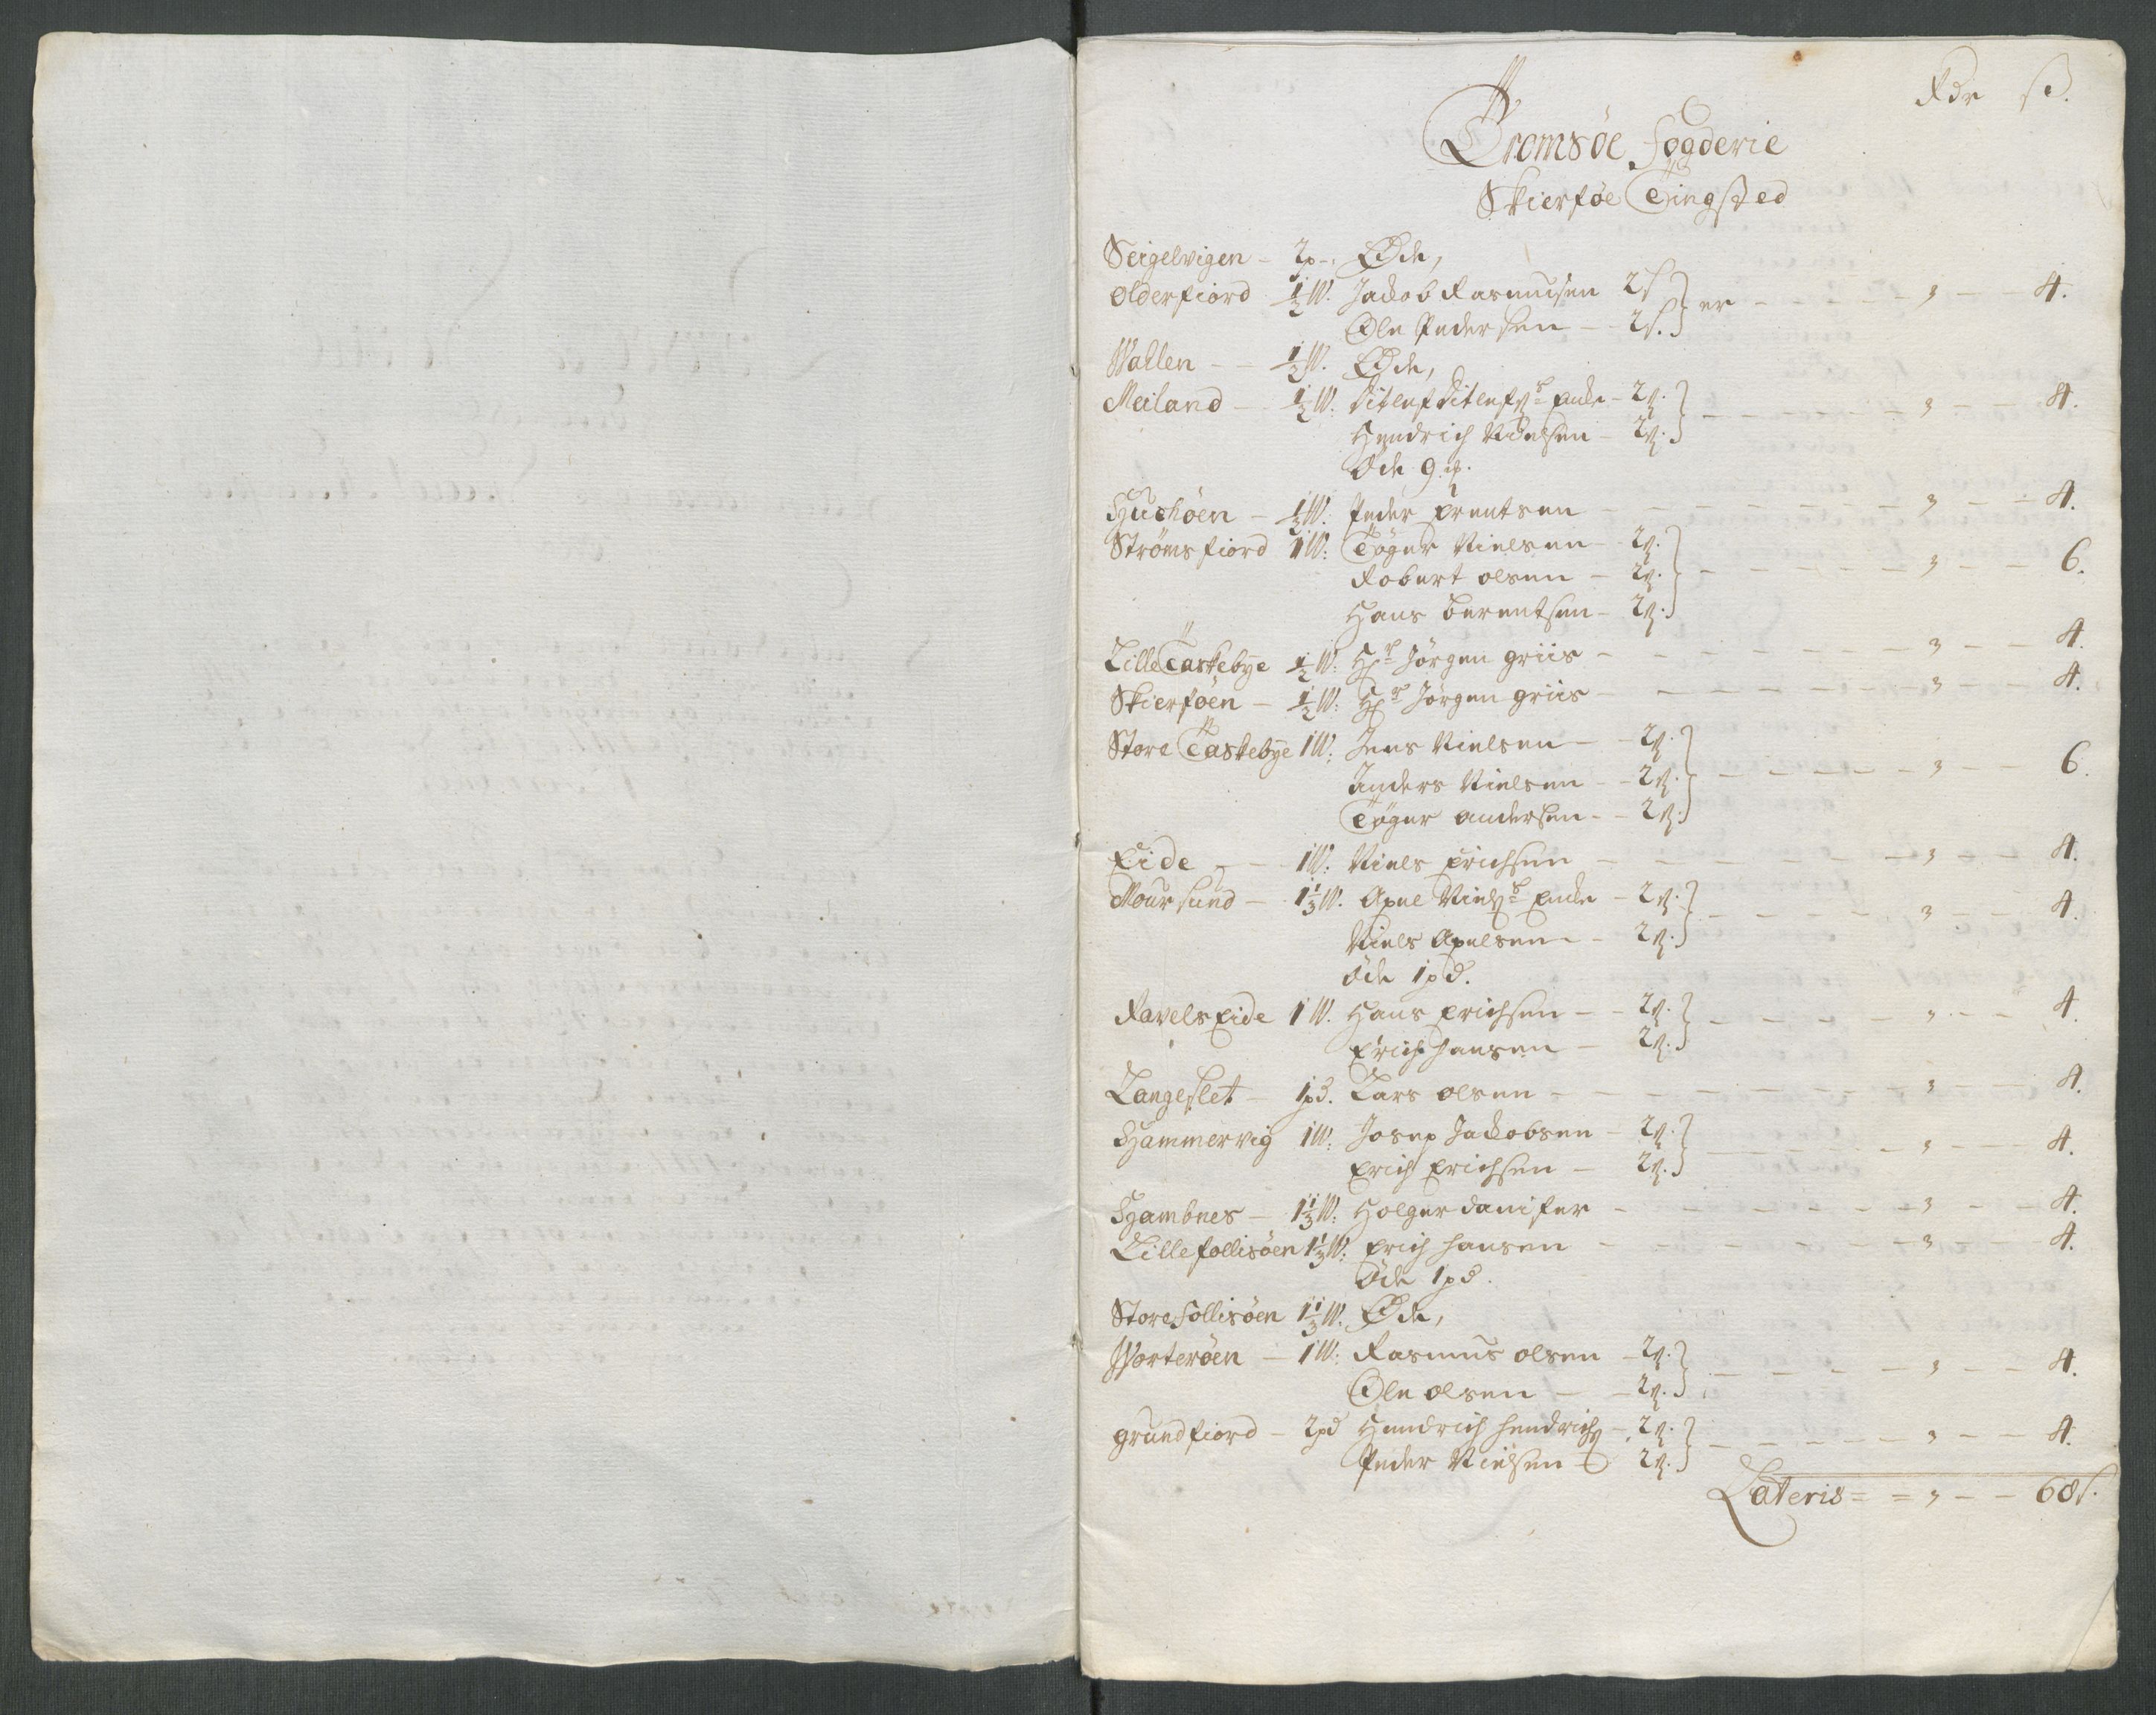 Rdr ß.
Tromsøe Fogderie
Skierføe Tingsted
Seigelvigen - 2p - Øde,
Olderfiord ½W. Jackob Rasmusen 2ß
Ole Pedersen - 2ß. er - - - 3 - 4.
Wallen - - ½W. Øde,
Meiland - ½W. Ditlef Ditlefs Encke - 2ß.
Hendrich Nielsen - 2ß. - - - 3 - - 4.
Øde 9 ß.
Huchøen - ½W. Peder Erentsen - - - 3 - - 4.
Strømsfiord 1W: Tøger Nielsen - 2ß.
Robert olsen - 2ß. - - - 3 - - 6.
Hans berentsen - 2ß.
Lille Taskebye ½W: Hr Jørgen griis - - - 3 - - 4.
Skierføen - ½W: Hr Jørgen griis - - - 3 - - 4.
Store Taskebye 1W: Jens Nielsen - - 2ß.
Anders Nielsen - - 2ß. - - - 3 - - 6.
Tøger andersen - - 2ß.
Eide - - 1W: Niels Erichsen - - - 3 - 4.
Moursund - 1⅓W. Axel Niels Encke - 2ß.
Niels Axelsen - - 2ß. - - - 3 - - 4.
Øde 1pd.
Ravels Eide 1W. Hans Erichsen - - 2ß.
Erich hansen - 2ß. - - - 3 - - 4.
Langeslet - 1pd. Lars olsen - - - 3 - - 4.
Hammervig 1W: Josep Jackobsen - 2ß.
Erich Erichsen - 2ß. - - - 3 - - 4.
Hambnes - 1⅓W: Holger danifer - - - 3 - - 4.
Lille follisøen 1⅓W: Erich hansen - - - 3 - - 4.
Øde 1pd.
Store Follisøen 1⅓W. Øde,
Worterøen - 1W: Rasmus olsen - 2ß.
Ole olsen - - 2ß. - - - 3 - - 4.
grundfiord - 2pd Hendrich hendrichs - 2ß.
Peder Nielsen - 2ß. - - - 3 - - 4.
Lateris = = 3 - - 68ß.